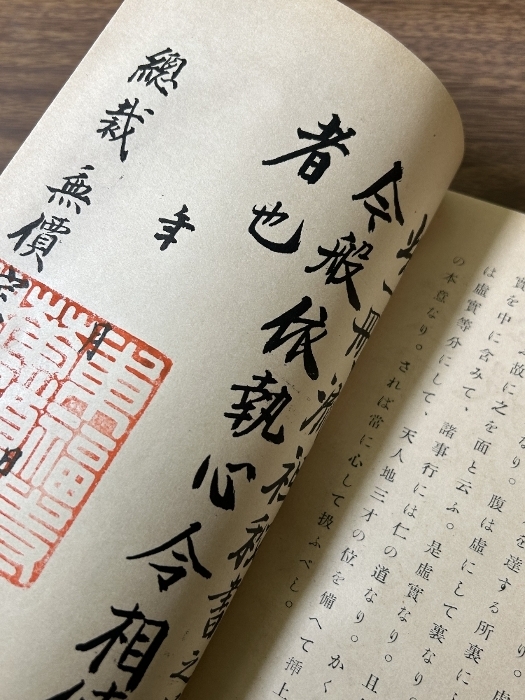 り。虚
を達する所裏に
なり。腹は虚にして裏なり。
故に之を面と云ふ。是虚實なり。且
實を中に含みて、諸事行には仁の道なり。かく
は虚實等分にして、天人地三才の位を備へて挿上
の本意なり。されば常に心して扱ふべし。
一冊
社秘書之
今般依執心令相
者也
年月日
總裁無價